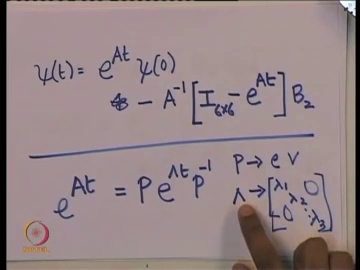 ψ(t) = e^{At} ψ(0)
- A^{-1} [I_{6×6} - e^{At}] B_2
e^{At} = P e^{Λt} P^{-1}
P → e v
Λ → [λ_1 0
λ_2
0 ⋱ λ_3]
NPTEL